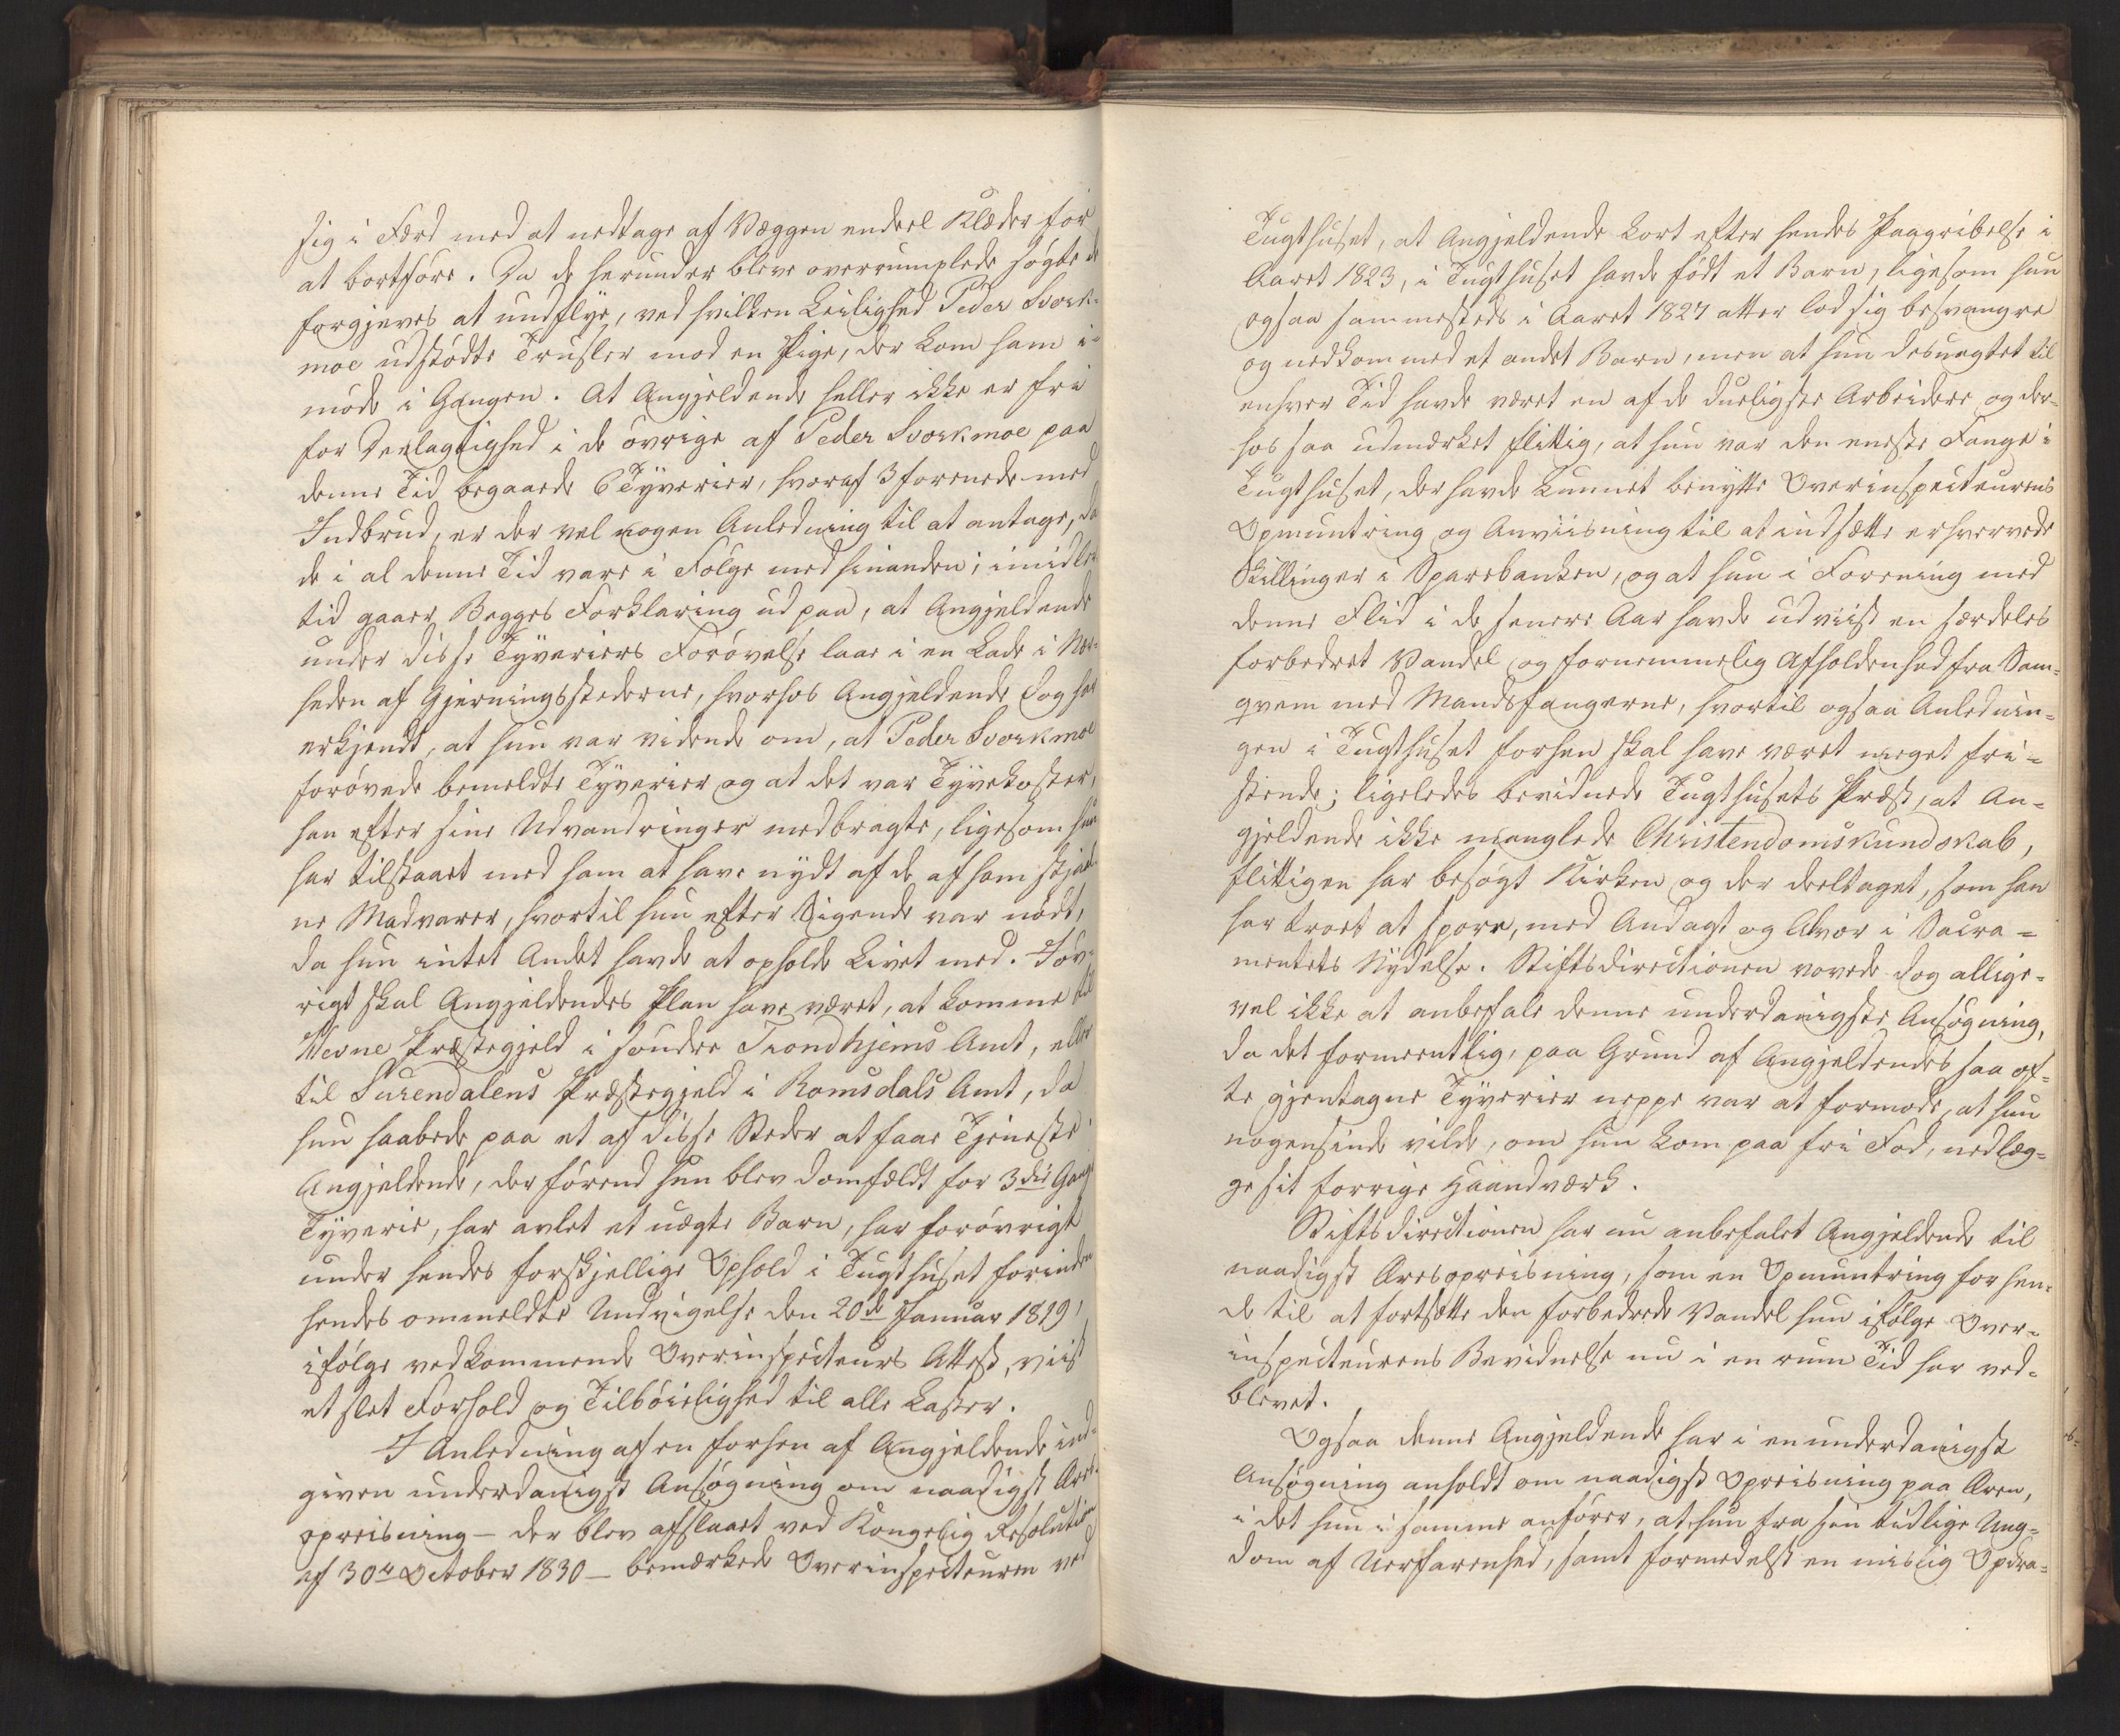 sig i Færd med at nedtage af Væggen endeel Klæder for
at bortføre. Da de herunder bleve overrumplede søgte de
forgjeves at undflye, ved hvilken Leilighed Peder Svork-
moe udstødte Trusler mod en Pige, der kom ham i-
møde i Gangen. At Angjeldende heller ikke er fri
for Deelagtighed i de øvrige af Peder Svorkmoe paa
denne Tid begaaede 6 Tyverier, hvoraf 3 forenede med
Indbrud, er der vel nogen Anledning til at antage, da
de i al denne Tid vare i Følge med hinanden; imidler-
tid gaaer Begges Forklaring ud paa, at Angjeldende
under disse Tyveriers Forøvelse laae i en Lade i Nær-
heden af Gjerningsstederne, hvorhos Angjeldende dog har
erkjendt, at hun var vidende om, at Peder Svorkmoe
forøvede bemeldte Tyverier og at det var Tyvekoster,
han efter sine Udvandringer medbragte, ligesom hun
har tilstaaet med ham at have nydt af de af ham stjaal-
ne Madvarer, hvortil hun efter Sigende var nødt,
da hun intet Andet havde at opholde Livet med. Iøv-
rigt skal Angjeldendes Plan have været, at komme til
Nevne Præstegjeld i søndre Trondhjems Amt, eller
til Surendalens Præstegjeld i Romsdals Amt, da
hun haabede paa et af disse Steder at faae Tjeneste.
Angjeldende, der førend hun blev domfældt for 3die Gang
Tyverie, har avlet et uægte Barn, har forøvrigt
under hendes forskjellige Ophold i Tugthuset forinden
hendes ommeldte Undvigelse den 20de Januar 1819,
ifølge vedkommende Overinspecteurs Attest, viist
et slet Forhold og Tilbøielighed til alle Laster.
I Anledning af en forhen af Angjeldende ind-
given underdanigst Ansøgning om naadigst Æres-
opreisning – der blev afslaaet ved Kongelig Resolution
af 30te October 1830 – bemærkede Overinspecteuren ved
Tugthuset, at Angjeldende kort efter hendes Paagribelse i
Aaret 1823, i Tugthuset havde født et Barn, ligesom hun
ogsaa sammesteds i Aaret 1827 atter lod sig besvangre
og nedkom med et andet Barn, men at hun desuagtet til
enhver Tid havde været en af de dueligste Arbeidere og der-
hos saa udmærket flittig, at hun var den eneste Fange i
Tugthuset, der havde kunnet benytte Overinspecteurens
Opmuntring og Anviisning til at indsætte erhvervede
Skillinger i Sparebanken, og at hun i Forening med
denne Flid i de senere Aar havde udviist en særdeles
forbedret Vandel og fornemmelig Afholdenhed fra Sam-
qvem med Mandsfangerne, hvortil ogsaa Anlednin-
gen i Tugthuset forhen skal have været meget fri-
stende; ligeledes bevidnede Tugthusets Præst, at An-
gjeldende ikke manglede Christendomskundskab,
flittigen har besøgt Kirken og der deeltaget, som han
har troet at spore, med Andagt og Alvor i Sacra-
mentets Nydelse. Stiftsdirectionen vovede dog allige-
vel ikke at anbefale denne underdanigste Ansøgning,
da det formeentlig, paa Grund af Angjeldendes saa of-
te gjentagne Tyverier neppe var at formode, at hun
nogensinde vilde, om hun kom paa fri Fod, nedlæg-
ge sit forrige Haandværk.
Stiftsdirectionen har nu anbefalet Angjeldende til
naadigst Æresopreisning, som en Opmuntring for hen-
de til at fortsætte den forbedrede Vandel hun ifølge Over-
inspecteurens Bevidnelse nu i en rum Tid har ved-
blevet.
Ogsaa denne Angjeldende har i en underdanigst
Ansøgning anholdt om naadigst Opreisning paa Æren,
i det hun i samme anfører, at hun fra sin tidlige Ung-
dom af Uerfarenhed, samt formedelst en mislig Opdra-